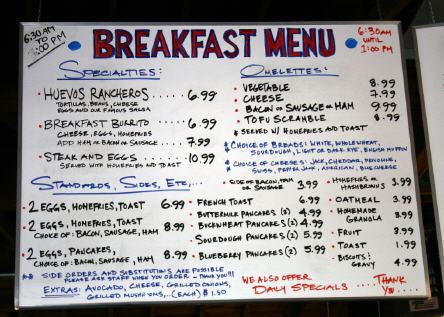 6:30 AM TO 1:00 PM
BREAKFAST MENU
6:30 AM UNTIL 1:00 PM
SPECIALTIES:
• HUEVOS RANCHEROS ..... 6.99
TORTILLAS, BEANS, CHEESE
EGGS AND OUR FAMOUS SALSA
• BREAKFAST BURRITO ..... 6.99
CHEESE, EGGS, HOMEFRIES
ADD HAM OR BACON OR SAUSAGE ..... 7.99
• STEAK AND EGGS ..... 10.99
SERVED WITH HOMEFRIES AND TOAST
OMELETTES:
• VEGETABLE 8.99
• CHEESE 7.99
• BACON OR SAUSAGE OR HAM 9.99
• TOFU SCRAMBLE 8.99
* SERVED W/ HOMEFRIES AND TOAST
* CHOICE OF BREADS: WHITE, WHOLEWHEAT,
SOURDOUGH, LIGHT OR DARK RYE, ENGLISH MUFFIN
* CHOICE OF CHEESES: JACK, CHEDDAR, PROVOLONE,
SWISS, PEPPER JACK, AMERICAN, BLUE CHEESE
STANDARDS, SIDES, ETC, ...
• 2 EGGS, HOMEFRIES, TOAST 6.99
• 2 EGGS, HOMEFRIES, TOAST
CHOICE OF: BACON, SAUSAGE, HAM 8.99
• 2 EGGS, PANCAKES,
CHOICE OF: BACON, SAUSAGE, HAM 8.99
** SIDE ORDERS AND SUBSTITUTIONS ARE POSSIBLE
PLEASE ASK STAFF WHEN YOU ORDER - THANK YOU!!!
EXTRAS: AVOCADO, CHEESE, GRILLED ONIONS,
GRILLED MUSHROOMS, .. (EACH) $1.50
• SIDE OF BACON, HAM OR SAUSAGE 3.99
• FRENCH TOAST 6.99
• BUTTERMILK PANCAKES (2) 4.99
• BUCKWHEAT PANCAKES (2) 4.99
• SOURDOUGH PANCAKES (2) 5.99
• BLUEBERRY PANCAKES (2) 5.99
• HOMEFRIES OR HASHBROWNS 3.99
• OATMEAL 3.99
• HOMEMADE GRANOLA 3.99
• FRUIT 3.99
• TOAST 1.99
• BISCUITS & GRAVY 4.99
WE ALSO OFFER
DAILY SPECIALS ..... THANK YOU